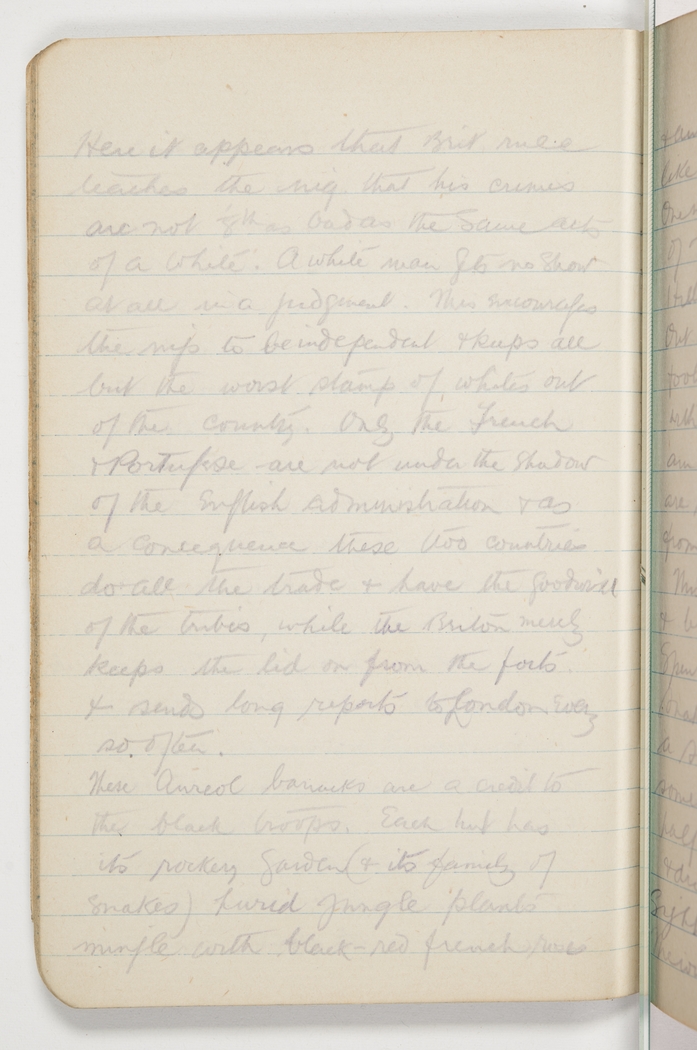 Here it appears that Brit rule
teaches the nig that his crimes
are not ⅛th as bad as the same acts
of a white. A white man gets no show
at all in a judgment. This encourages
the nigs to be independent & keeps all
but the worst stamp of whites out
of the country. Only the French
& Portugese are not under the shadow
of the English administration & as
a consequence these two countries
do all the trade & have the goodwill
of the tribes, while the Briton merely
keeps the lid on from the forts
& sends long reports to London every
so often.
These Aureol barracks are a credit to
the black troops. Each hut has
its rockery garden (& its family of
snakes) Lurid jungle plants
mingle with black-red french roses